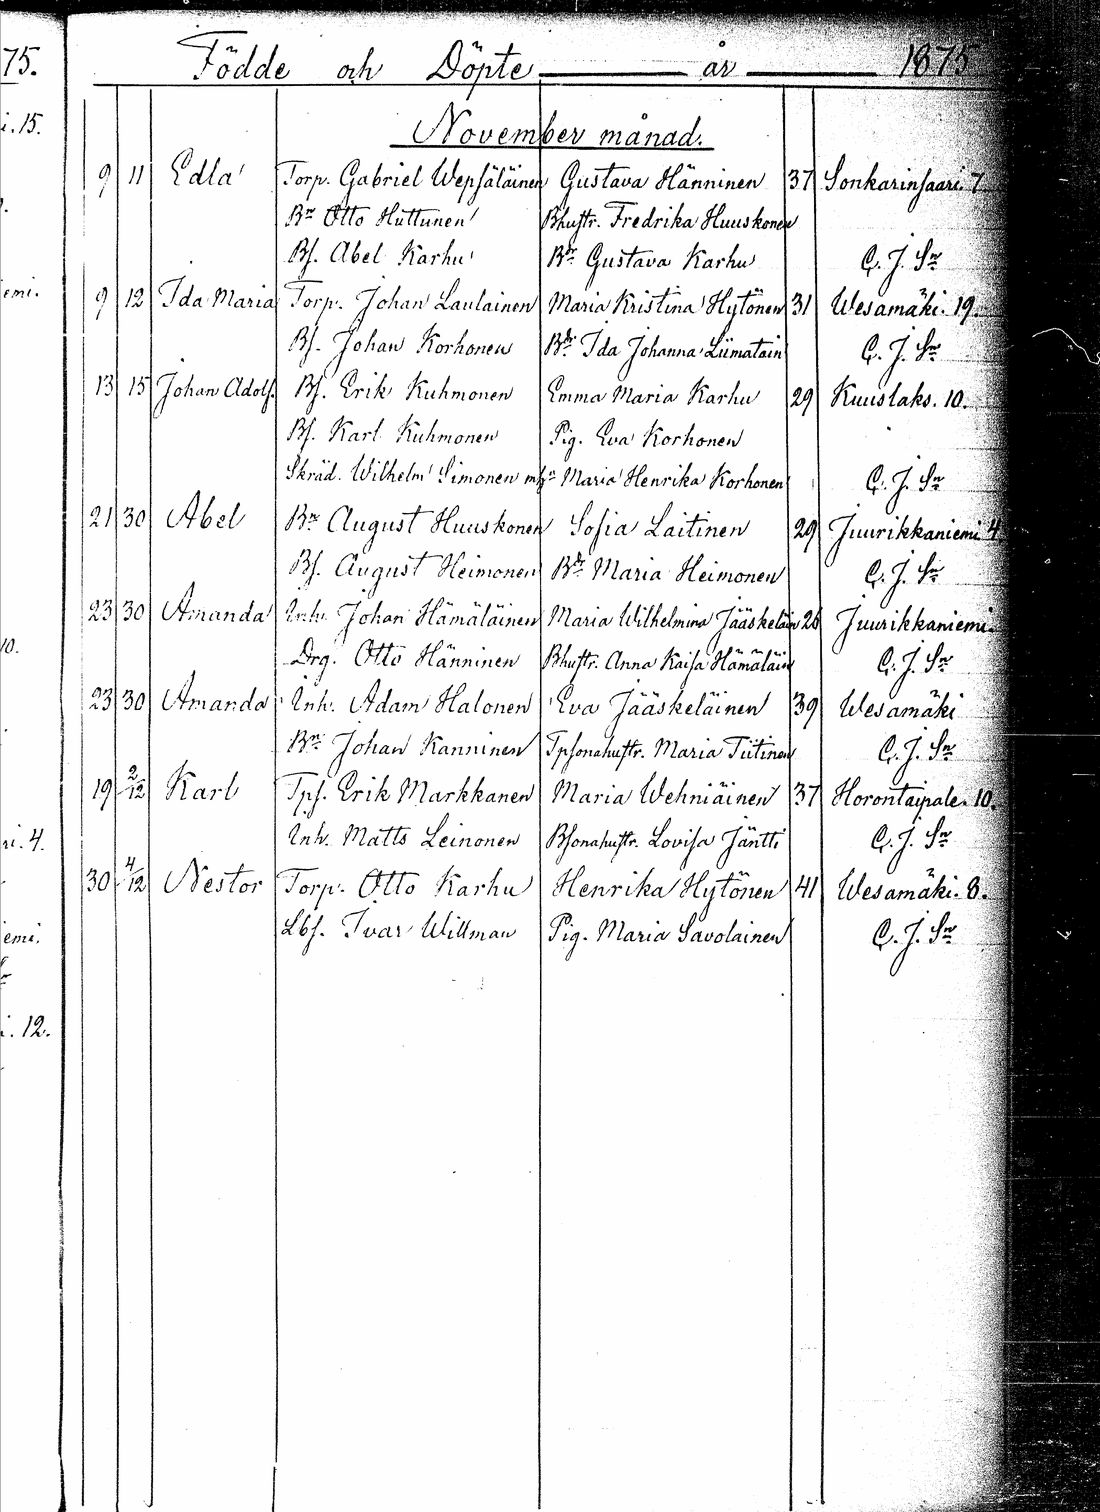 75.
Födde och Döpte år 1875
i. 15.
November månad.
9 11 Edla Torp. Gabriel Wepsäläinen Gustava Hänninen 37 Sonkarinsaari. 7
Bn Otto Huttunen Bhustr. Fredrika Huuskonen
Bs. Abel Karhu Bn Gustava Karhu C. J. Sn
emi.
9 12 Ida Maria Torp. Johan Laulainen Maria Kristina Hytönen 31 Wesamäki. 19.
Bs. Johan Korhonen Bdr Ida Johanna Liimatain C. J. Sn
13 15 Johan Adolf. Bs. Erik Kuhmonen Emma Maria Karhu 29 Kuuslaks. 10.
Bs. Karl Kuhmonen Pig. Eva Korhonen
Skräd. Wilhelm Simonen mhn Maria Henrika Korhonen C. J. Sn
21 30 Abel Bn August Huuskonen Sofia Laitinen 29 Juurikkaniemi 4
Bs. August Heimonen Bdr Maria Heimonen C. J. Sn
23 30 Amanda Inh. Johan Hämäläinen Maria Wilhelmina Jääskeläin 26 Juurikkaniemi.
10. Drg. Otto Hänninen Bhustr. Anna Kaisa Hämäläin C. J. Sn
23 30 Amanda Inh. Adam Halonen Eva Jääskeläinen 39 Wesamäki
Bn Johan Kanninen Tpsonahustr. Maria Tiitinen C. J. Sn
19 2/12 Karl Tps. Erik Markkanen Maria Wehniäinen 37 Horontaipale. 10.
ri. 4. Inh. Matts Leinonen Bsonahustr. Lovisa Jäntti C. J. Sn
30 4/12 Nestor Torp. Otto Karhu Henrika Hytönen 41 Wesamäki. 8.
emi. Lbs. Ivar Willman Pig. Maria Savolainen C. J. Sn
i. 12.